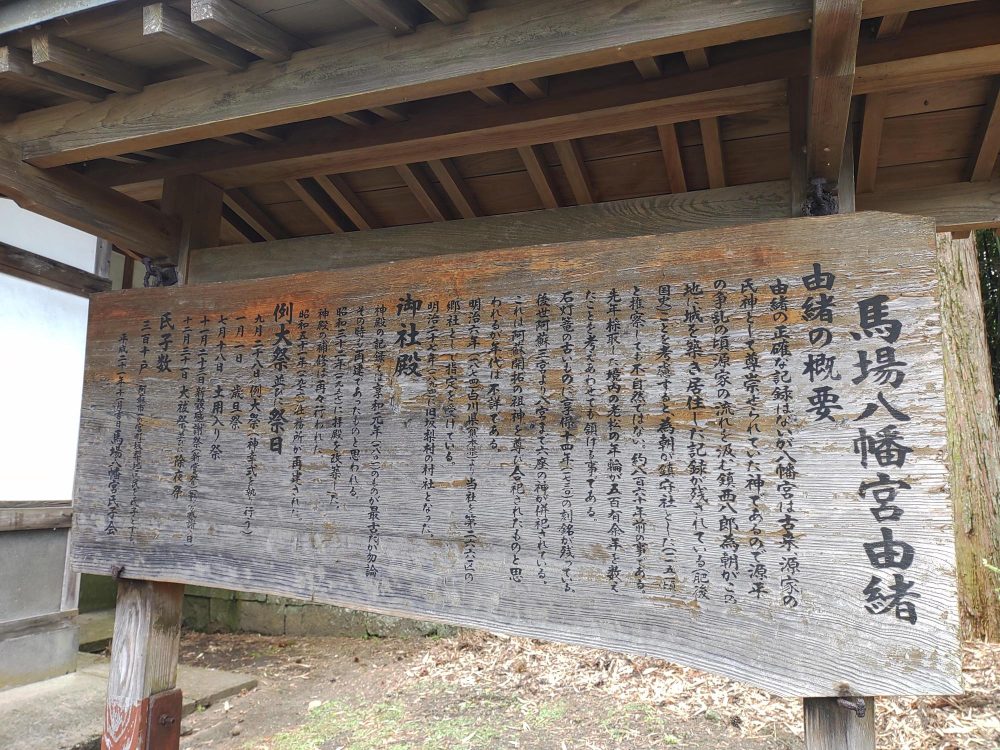 馬場八幡宮由緒
由緒の概要
由緒の正確な記録はないが八幡宮は古来源家の
氏神として尊崇せられていた神であるので源平
の争乱の頃源家の流れを汲む鎮西八郎為朝がこの
地に城を築き居住した記録が残されている肥後
国史ことを考慮すると為朝が鎮守社とした
と推察しても不自然ではない。約八百六十年前の事である。
先年採取した境内の老松の年輪が五百有余年を数え
たことを考えあわせても頷ける事である。
石灯篭の古いものに享保十四年の刻銘が残っている。
後世阿蘇三宮より八宮まで六座の神が併祀されている。
これは阿蘇開拓の祖神を尊び合祀されたものと思
われるが年代は不詳である。
明治六年 当社を
郷社として指定を受けている。
明治 旧坂梨村の村社となった。
御社殿
神殿の記録では享和元年のものが最古だが勿論
その後再建であったものと思われる。
昭和三十二年 に拝殿を改築した。
神殿の補修は再々行われた
昭和五十一年 社務所が再建された。
例大祭並びに祭日
九月二十八日 例大祭
一月一日 歳旦祭
七月十八日 土用入り祭
十一月二十三日 新穀感謝祭
十二月三十一日 大祓祭並びに除夜祭
氏子数
三百十戸
平成二十一年 馬場八幡宮氏子会